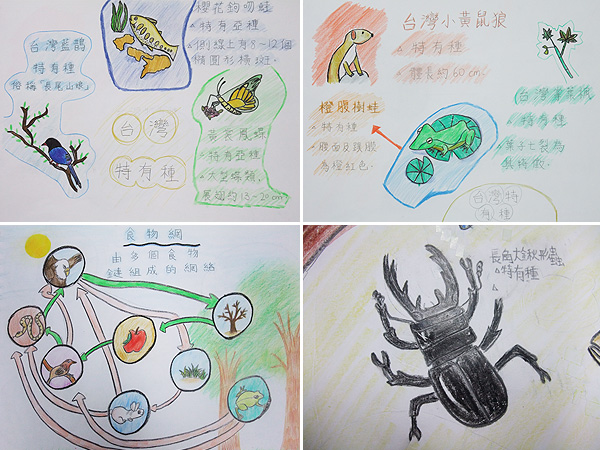 櫻花鉤吻鮭
△特有亞種
△側線上有8~12個
橢圓形橫斑.
台灣藍鵲
特有種
俗稱「長尾山娘」
台灣
特有種
黃裳鳳蝶
△特有亞種
△大型蝶類,
展翅約13~20cm
台灣小黃鼠狼
△特有種
△體長約60cm
橙腹樹蛙
△特有種
△腹面及
為橙紅色.
台灣
△特有種
△葉子七裂為
台灣特
有種
食物網
由多個食物
鏈組成的網絡
長角大鍬形蟲
△特有種
△